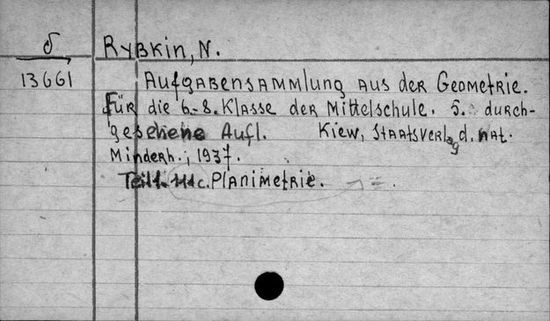 δ
Rybkin, N.
13661
Aufgabensammlung aus der Geometrie.
Für die 6.-8. Klasse der Mittelschule. 5. durch-
gesehene Aufl. Kiew, Staatsverlag d. nat.
Minderh., 1937.
Teil 1. 111c. Planimetrie.